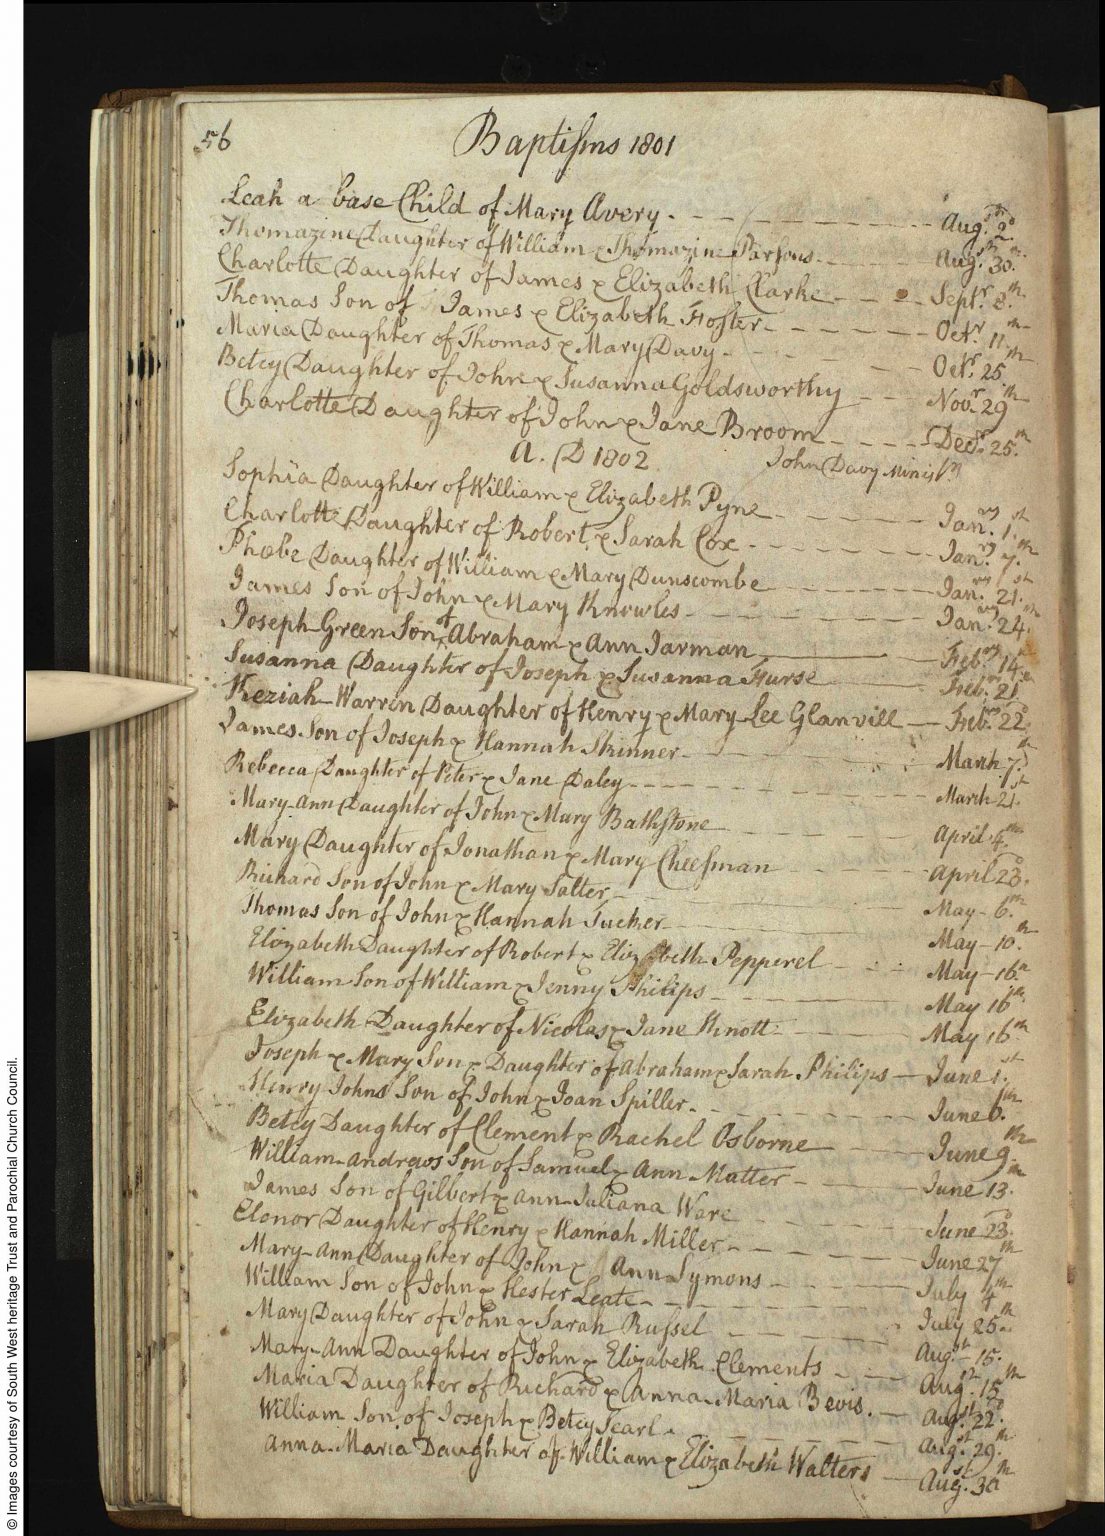 56
Baptisms 1801
Leah a base Child of Mary Avery - Aug.st 9.
Thomazine Daughter of William & Thomazine Parsons - Aug.st 30.th
Charlotte Daughter of James & Elizabeth Clarke - Sept.r 8.th
Thomas Son of James & Elizabeth Foster - Oct.r 11.th
Maria Daughter of Thomas & Mary Davy - Oct.r 25.th
Betcy Daughter of John & Susanna Goldsworthy - Nov.r 29.th
Charlotte Daughter of John & Jane Broom - Dec.r 25.th
A. D 1802 John Davy Minis.tr
Sophia Daughter of William & Elizabeth Pyne - Jan.ry 1.st
Charlotte Daughter of Robert & Sarah Cox - Jan.ry 7.th
Phœbe Daughter of William & Mary Dunscombe - Jan.ry 21.st
James Son of John & Mary Knowles - Jan.ry 24.th
Joseph-Green Son of Abraham & Ann Jarman - Feb.ry 14.th
Susanna Daughter of Joseph & Susanna Furse - Feb.ry 21.
Keziah-Warren Daughter of Henry & Mary-Lee Glanvill - Feb.ry 22.
James Son of Joseph & Hannah Skinner - March 7.th
Rebecca Daughter of Peter & Jane Daley - March 21.st
Mary-Ann Daughter of John & Mary Bathstone - April 4.th
Mary Daughter of Jonathan & Mary Cheesman - April 23.
Richard Son of John & Mary Salter - May - 6.th
Thomas Son of John & Hannah Tucker - May - 10.th
Elizabeth Daughter of Robert & Elizabeth Pepperel - May - 16.th
William Son of William & Jenny Philips - May 16.th
Elizabeth Daughter of Nicolas & Jane Knott - May 16.th
Joseph & Mary Son & Daughter of Abraham & Sarah Philips - June 1.st
Henry Johns Son of John & Joan Spiller - June 6.th
Betcy Daughter of Clement & Rachel Osborne - June 9.th
William-Andrews Son of Samuel & Ann Matter - June 13.th
James Son of Gilbert & Ann-Juliana Ware - June 23.
Elonor Daughter of Henry & Hannah Miller - June 27.th
Mary-Ann Daughter of John & Ann Symons - July 4.th
William Son of John & Hester Leate - July 25.th
Mary Daughter of John & Sarah Russel - Aug.st 15.
Mary-Ann Daughter of John & Elizabeth Clements - Aug.st 15.th
Maria Daughter of Richard & Anna-Maria Bevis. - Aug.st 22.
William Son of Joseph & Betcy Searl - Aug.st 29.th
Anna-Maria Daughter of William & Elizabeth Walters - Aug.st 30.th
© Images courtesy of South West heritage Trust and Parochial Church Council.